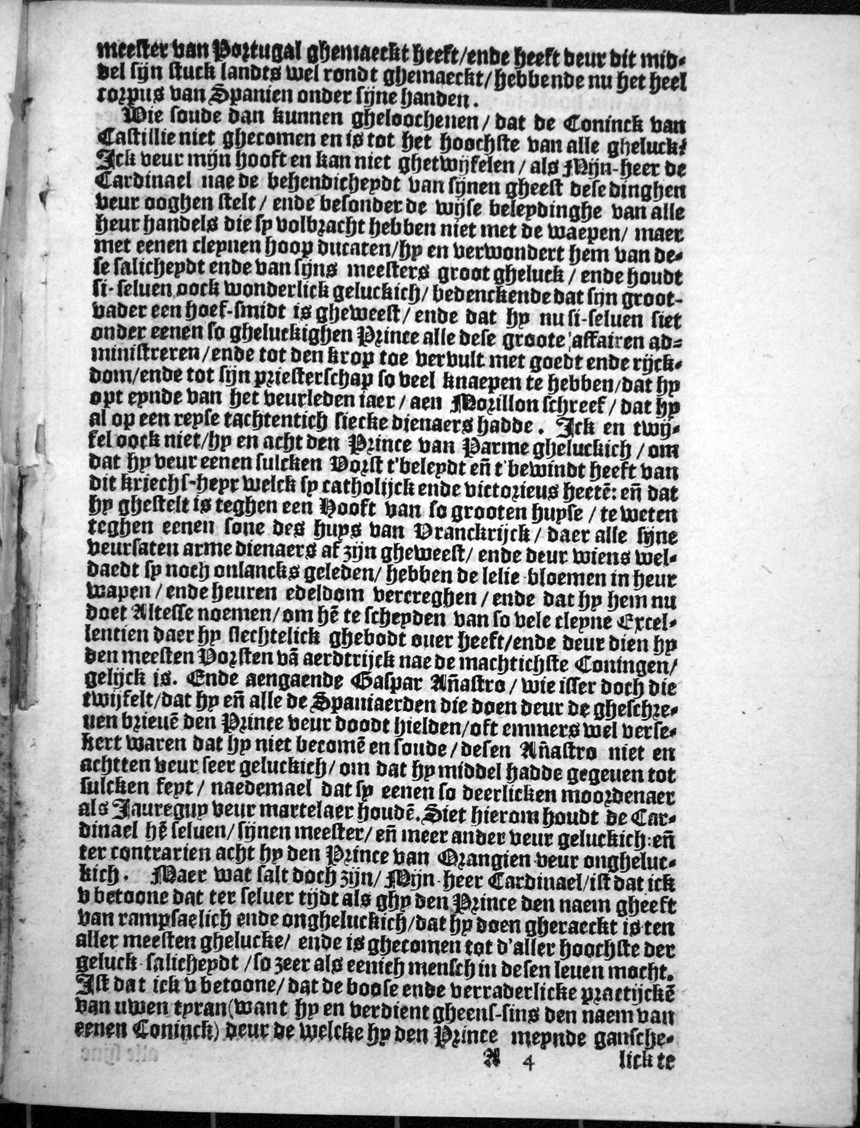 meester van Portugal ghemaeckt heeft/ende heeft deur dit mid-
del sijn stuck landts wel rondt ghemaeckt/hebbende nu het heel
corpus van Spanien onder sijne handen.
Wie soude dan kunnen gheloochenen/ dat de Coninck van
Castillie niet ghecomen en is tot het hoochste van alle gheluck?
Ick veur mijn hooft en kan niet ghetwijfelen/ als Mijn-heer de
Cardinael nae de behendicheydt van sijnen gheest dese dinghen
veur ooghen stelt/ ende besonder de wijse beleydinghe van alle
heur handels die sy volbracht hebben niet met de waepen/ maer
met eenen cleynen hoop ducaten/hy en verwondert hem van de-
se salicheydt ende van sijns meesters groot gheluck/ ende houdt
si-seluen oock wonderlick geluckich/ bedenckende dat sijn groot-
vader een hoef-smidt is gheweest/ ende dat hy nu si-seluen siet
onder eenen so gheluckighen Prince alle dese groote affairen ad-
ministreren/ende tot den krop toe vervult met goedt ende rijck-
dom/ende tot sijn priesterschap so veel knaepen te hebben/dat hy
opt eynde van het veurleden iaer/ aen Morillon schreef/ dat hy
al op een reyse tachtentich siecke dienaers hadde. Ick en twij-
fel oock niet/hy en acht den Prince van Parme gheluckich/ om
dat hy veur eenen sulcken Vorst t'beleydt eñ t'bewindt heeft van
dit kriechs-heyr welck sy catholijck ende victorieus heetē: eñ dat
hy ghestelt is teghen een Hooft van so grooten huyse/ te weten
teghen eenen sone des huys van Vranckrijck/ daer alle sijne
veursaten arme dienaers af zijn gheweest/ ende deur wiens wel-
daedt sy noch onlancks geleden/ hebben de lelie-bloemen in heur
wapen/ ende heuren edeldom vercreghen/ ende dat hy hem nu
doet Altesse noemen/om hē te scheyden van so vele cleyne Excel-
lentien daer hy slechtelick ghebodt ouer heeft/ende deur dien hy
den meesten Vorsten vā aerdtrijck nae de machtichste Coningen/
gelijck is. Ende aengaende Gaspar Añastro/ wie isser doch die
twijfelt/dat hy eñ alle de Spaniaerden die doen deur de gheschre-
uen brieuē den Prince veur doodt hielden/oft emmers wel verse-
kert waren dat hy niet becomē en soude/ desen Añastro niet en
achtten veur seer geluckich/ om dat hy middel hadde gegeuen tot
sulcken feyt/ naedemael dat sy eenen so deerlicken moordenaer
als Jaureguy veur martelaer houdē. Siet hierom houdt de Car-
dinael hē seluen/ sijnen meester/ eñ meer ander veur geluckich: eñ
ter contrarien acht hy den Prince van Orangien veur ongheluc-
kich. Maer wat salt doch zijn/ Mijn-heer Cardinael/ist dat ick
v betoone dat ter seluer tijdt als ghy den Prince den naem gheeft
van rampsaelich ende ongheluckich/dat hy doen gheraeckt is ten
aller meesten ghelucke/ ende is ghecomen tot d'aller hoochste der
geluck-salicheydt/so zeer als eenich mensch in desen leuen mocht.
Ist dat ick v betoone/ dat de boose ende verraderlicke practijckē
van uwen tyran(want hy en verdient gheens-sins den naem van
eenen Coninck) deur de welcke hy den Prince meynde gansche-
A 4 lick te